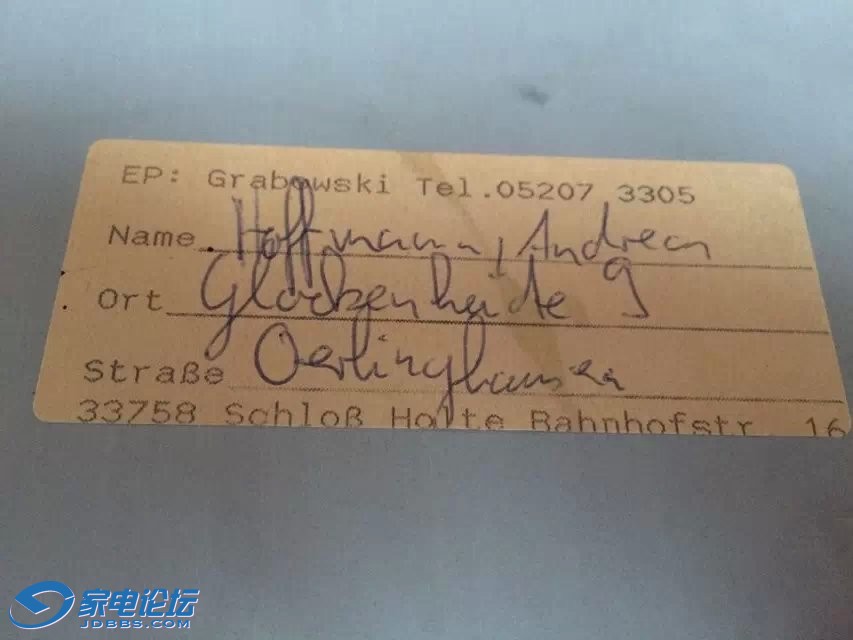 EP: Grabowski Tel.05207 3305
Name Hoffmann, Andrea
Ort Glockenheide 9
Straße Oerlinghausen
33758 Schloß Holte Bahnhofstr 16
家电论坛
JDBBS.COM